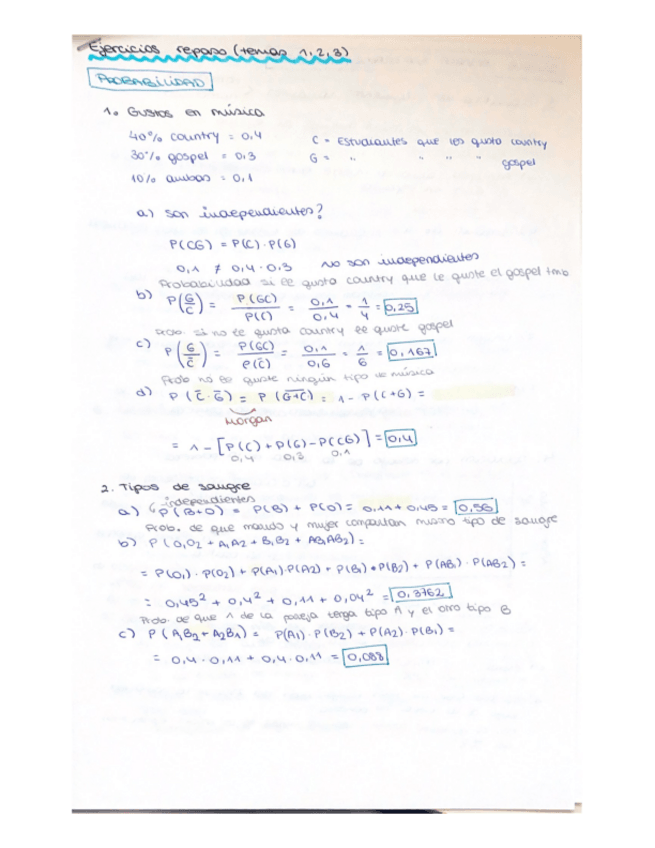 Ejercicios repaso (temas 1, 2, 3)
PROBABILIDAD
1. Gustos en música
40% country = 0,4 C = Estudiantes que les gusta country
30% gospel = 0,3 G = " " " " gospel
10% ambas = 0,1
a) son independientes?
P(CG) = P(C) · P(G)
0,1 ≠ 0,4 · 0,3 no son independientes
Probabilidad si le gusta country que le guste el gospel tmb
b) P(G/C) = P(GC)/P(C) = 0,1/0,4 = 1/4 = 0,25
Prob. si no le gusta country le guste gospel
c) P(G/C̄) = P(GC)/P(C̄) = 0,1/0,6 = 1/6 = 0,167
Prob no le guste ningún tipo de música
d) P(C̄·Ḡ) = P(G+C)‾ = 1 - P(C+G) =
Morgan
= 1 - [P(C) + P(G) - P(CG)] = 0,4
0,4 0,3 0,1
2. Tipos de sangre
independientes
a) P(B+O) = P(B) + P(O) = 0,11 + 0,45 = 0,56
Prob. de que marido y mujer compartan mismo tipo de sangre
b) P(O₁O₂ + A₁A₂ + B₁B₂ + AB₁AB₂) =
= P(O₁) · P(O₂) + P(A₁) · P(A₂) + P(B₁) + P(B₂) + P(AB₁) · P(AB₂) =
= 0,45² + 0,4² + 0,11 + 0,04² = 0,3762
Prob. de que 1 de la pareja tenga tipo A y el otro tipo B
c) P(A₁B₂ + A₂B₁) = P(A₁) · P(B₂) + P(A₂) · P(B₁) =
= 0,4 · 0,11 + 0,4 · 0,11 = 0,088